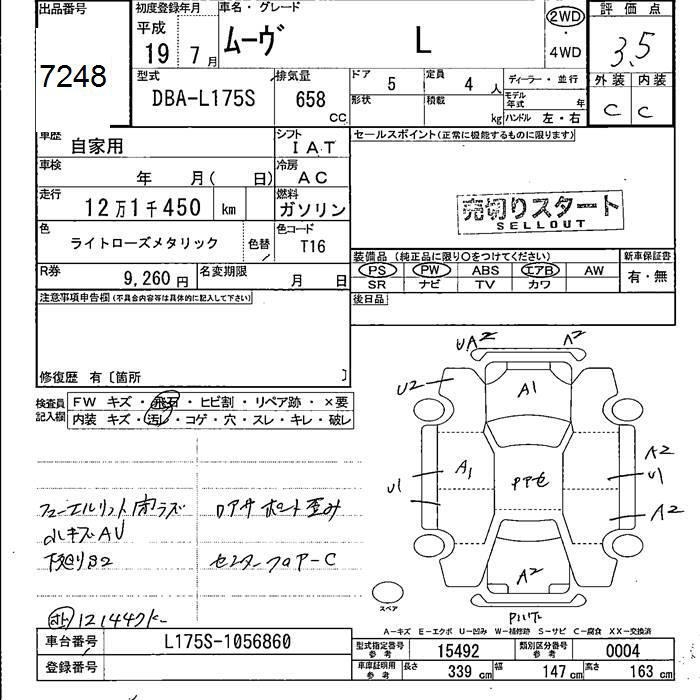 出品番号
7248
初度登録年月
平成
19年7月
車名・グレード
ムーヴ L
2WD
・
4WD
評価点
3.5
外装 内装
C C
型式
DBA-L175S
排気量
658
CC
ドア 5
定員 4人
形状
積載 kg
ディーラー・並行
モデル年式 年
ハンドル 左・右
車歴
自家用
シフト
IAT
車検
年 月( 日)
冷房
AC
走行
12万1千450 km
燃料
ガソリン
色
ライトローズメタリック
色替
色コード
T16
R券
9,260円
名変期限
月 日
セールスポイント(正常に機能するものに限ります)
売切りスタート
SELLOUT
装備品 (純正品に限り○をつけてください)
PS PW ABS エアB AW
SR ナビ TV カワ
新車保証書
有・無
後日品
注意事項申告欄(不具合内容等は具体的に記入して下さい)
修復歴 有〔箇所 〕
検査員
記入欄
FW キズ・飛石・ヒビ割・リペア跡・×要
内装 キズ・汚レ・コゲ・穴・スレ・キレ・破レ
小キズAU
下廻りS2
ロアサポート歪み
センターフロアーC
121447K
UA2 A2
U2
A1
A1
U1
PPモ
A2
U1
A2
A2
スペア
A-キズ E-エクボ U-凹み W-補修跡 S-サビ C-腐食 XX-交換済
車台番号
L175S-1056860
登録番号
型式指定番号
参考
15492
類別区分番号
参考
0004
車庫証明用
参考
長さ 339 cm
幅 147 cm
高さ 163 cm